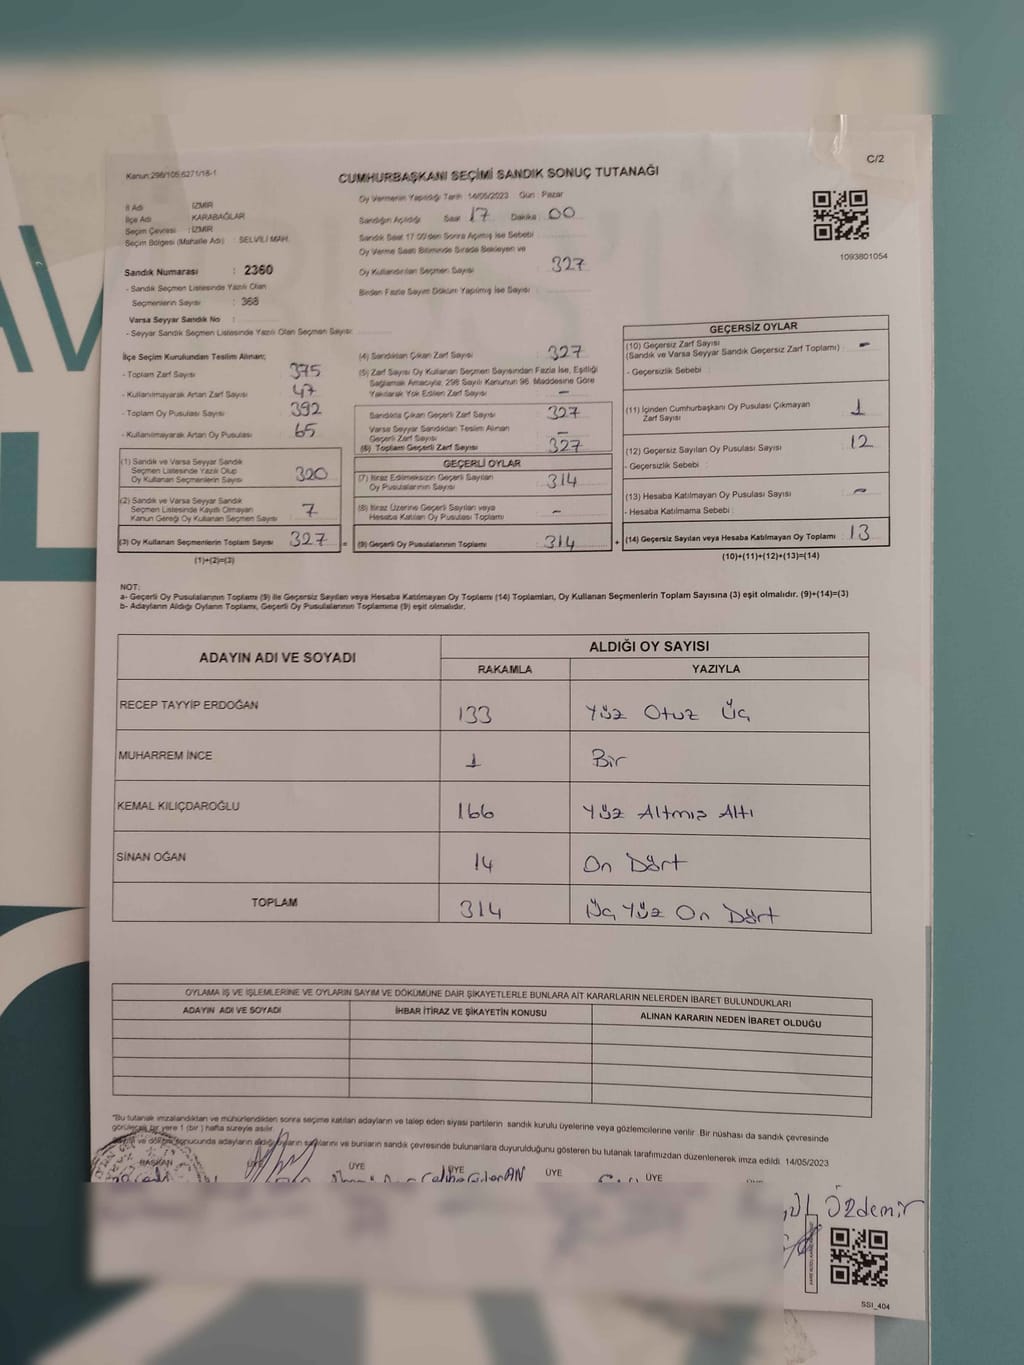 C/2
Kanun:298/105,6271/18-1
CUMHURBAŞKANI SEÇİMİ SANDIK SONUÇ TUTANAĞI
İl Adı : İZMİR
İlçe Adı : KARABAĞLAR
Seçim Çevresi : İZMİR
Seçim Bölgesi (Mahalle Adı) : SELVİLİ MAH.
Sandık Numarası : 2360
- Sandık Seçmen Listesinde Yazılı Olan
Seçmenlerin Sayısı : 368
Varsa Seyyar Sandık No :
- Seyyar Sandık Seçmen Listesinde Yazılı Olan Seçmen Sayısı:
Oy Vermenin Yapıldığı Tarih 14/05/2023 Gün : Pazar
Sandığın Açıldığı Saat 17 Dakika : 00
Sandık Saat 17:00'den Sonra Açılmış İse Sebebi
Oy Verme Saati Bitiminde Sırada Bekleyen ve
Oy Kullandırılan Seçmen Sayısı : 327
Birden Fazla Sayım Döküm Yapılmış İse Sayısı :
1093801054
İlçe Seçim Kurulundan Teslim Alınan;
- Toplam Zarf Sayısı : 375
- Kullanılmayarak Artan Zarf Sayısı : 47
- Toplam Oy Pusulası Sayısı : 392
- Kullanılmayarak Artan Oy Pusulası : 65
(1) Sandık ve Varsa Seyyar Sandık
Seçmen Listesinde Yazılı Olup
Oy Kullanan Seçmenlerin Sayısı : 320
(2) Sandık ve Varsa Seyyar Sandık
Seçmen Listesinde Kayıtlı Olmayan
Kanun Gereği Oy Kullanan Seçmen Sayısı : 7
(3) Oy Kullanan Seçmenlerin Toplam Sayısı : 327 =
(1)+(2)=(3)
(4) Sandıktan Çıkan Zarf Sayısı : 327
(5) Zarf Sayısı Oy Kullanan Seçmen Sayısından Fazla İse, Eşitliği
Sağlamak Amacıyla, 298 Sayılı Kanunun 98. Maddesine Göre
Yakılarak Yok Edilen Zarf Sayısı : -
Sandıkta Çıkan Geçerli Zarf Sayısı : 327
Varsa Seyyar Sandıktan Teslim Alınan
Geçerli Zarf Sayısı : -
(6) Toplam Geçerli Zarf Sayısı : 327
GEÇERLİ OYLAR
(7) İtiraz Edilmeksizin Geçerli Sayılan
Oy Pusulalarının Sayısı : 314
(8) İtiraz Üzerine Geçerli Sayılan veya
Hesaba Katılan Oy Pusulası Toplamı : -
(9) Geçerli Oy Pusulalarının Toplamı : 314 +
GEÇERSİZ OYLAR
(10) Geçersiz Zarf Sayısı : -
(Sandık ve Varsa Seyyar Sandık Geçersiz Zarf Toplamı)
- Geçersizlik Sebebi :
(11) İçinden Cumhurbaşkanı Oy Pusulası Çıkmayan
Zarf Sayısı : 1
(12) Geçersiz Sayılan Oy Pusulası Sayısı : 12
- Geçersizlik Sebebi :
(13) Hesaba Katılmayan Oy Pusulası Sayısı : -
- Hesaba Katılmama Sebebi :
(14) Geçersiz Sayılan veya Hesaba Katılmayan Oy Toplamı : 13
(10)+(11)+(12)+(13)=(14)
NOT:
a- Geçerli Oy Pusulalarının Toplamı (9) ile Geçersiz Sayılan veya Hesaba Katılmayan Oy Toplamı (14) Toplamları, Oy Kullanan Seçmenlerin Toplam Sayısına (3) eşit olmalıdır. (9)+(14)=(3)
b- Adayların Aldığı Oyların Toplamı, Geçerli Oy Pusulalarının Toplamına (9) eşit olmalıdır.
ADAYIN ADI VE SOYADI ALDIĞI OY SAYISI
RAKAMLA YAZIYLA
RECEP TAYYİP ERDOĞAN 133 Yüz Otuz Üç
MUHARREM İNCE 1 Bir
KEMAL KILIÇDAROĞLU 166 Yüz Altmış Altı
SİNAN OĞAN 14 On Dört
TOPLAM 314 Üç Yüz On Dört
OYLAMA İŞ VE İŞLEMLERİNE VE OYLARIN SAYIM VE DÖKÜMÜNE DAİR ŞİKAYETLERLE BUNLARA AİT KARARLARIN NELERDEN İBARET BULUNDUKLARI
ADAYIN ADI VE SOYADI İHBAR İTİRAZ VE ŞİKAYETİN KONUSU ALINAN KARARIN NEDEN İBARET OLDUĞU
"Bu tutanak imzalandıktan ve mühürlendikten sonra seçime katılan adayların ve talep eden siyasi partilerin sandık kurulu üyelerine veya gözlemcilerine verilir. Bir nüshası da sandık çevresinde
görülecek bir yere 1 (bir) hafta süreyle asılır.
ve döküm sonucunda adayların aldığı oyların sayılarını ve bunların sandık çevresinde bulunanlara duyurulduğunu gösteren bu tutanak tarafımızdan düzenlenerek imza edildi. 14/05/2023
BAŞKAN ÜYE ÜYE ÜYE ÜYE ÜYE
Özdemir
SSI_404